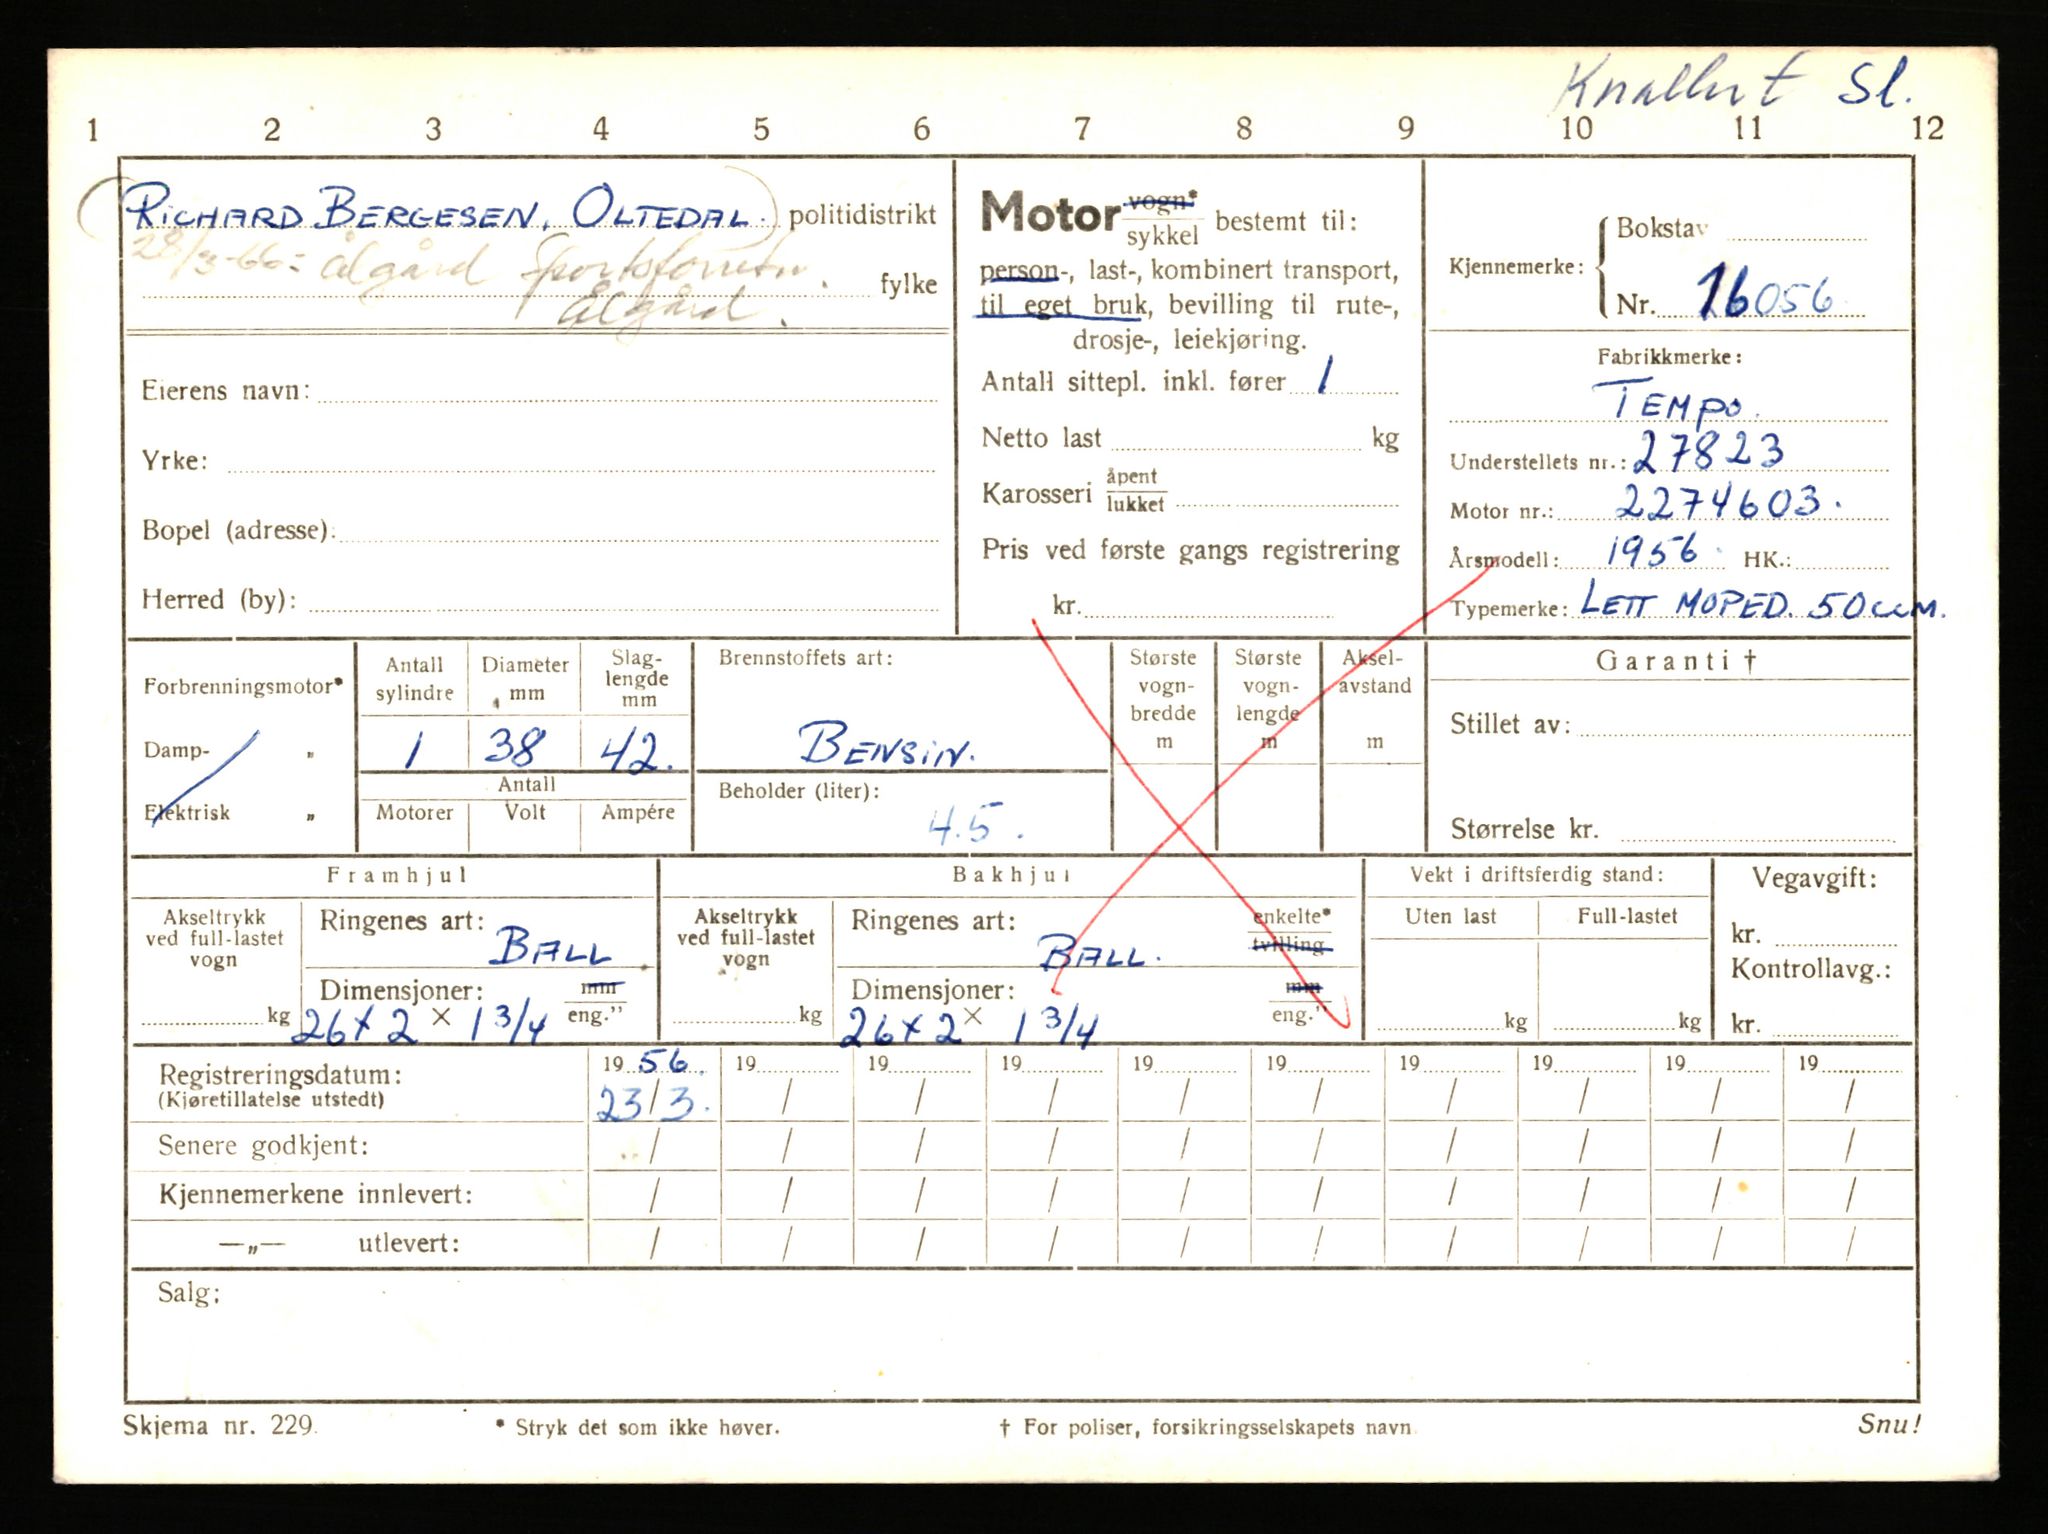 Knallert Sl.
1 2 3 4 5 6 7 8 9 10 11 12
RICHARD BERGESEN, OLTEDAL. politidistrikt
28/3-66: Ålgård Sportsforretn. fylke
Ålgård.
Eierens navn:
Yrke:
Bopel (adresse):
Herred (by):
Motor vogn* sykkel bestemt til:
person-, last-, kombinert transport,
til eget bruk, bevilling til rute-,
drosje-, leiekjøring.
Antall sittepl. inkl. fører 1
Netto last kg
Karosseri åpent lukket
Pris ved første gangs registrering
kr.
Kjennemerke: Bokstav
Nr. 16056
Fabrikkmerke:
TEMPO.
Understellets nr.: 27823
Motor nr.: 2274603.
Årsmodell: 1956. HK.:
Typemerke: LETT MOPED. 50 ccm.
Forbrenningsmotor*
Damp- „
Elektrisk „
Antall sylindre
Diameter mm
Slag-
lengde
mm
1 38 42.
Antall
Motorer Volt Ampére
Brennstoffets art:
BENSIN.
Beholder (liter):
4.5.
Største
vogn-
bredde
m
Største
vogn-
lengde
m
Aksel-
avstand
m
Garanti †
Stillet av:
Størrelse kr.
Framhjul
Akseltrykk
ved full-lastet
vogn
kg
Ringenes art:
BALL.
Dimensjoner: mm eng."
26 x 2 × 1 3/4
Bakhjul
Akseltrykk
ved full-lastet
vogn
kg
Ringenes art: enkelte* tvilling
BALL.
Dimensjoner: mm eng."
26 x 2 × 1 3/4
Vekt i driftsferdig stand:
Uten last Full-lastet
kg kg
Vegavgift:
kr.
Kontrollavg.:
kr.
Registreringsdatum: 19 56. 19 19 19 19 19 19 19 19 19
(Kjøretillatelse utstedt) 23/3. / / / / / / / / /
Senere godkjent: / / / / / / / / / /
Kjennemerkene innlevert: / / / / / / / / / /
—„— utlevert: / / / / / / / / / /
Salg:
Skjema nr. 229. * Stryk det som ikke høver. † For poliser, forsikringsselskapets navn. Snu!